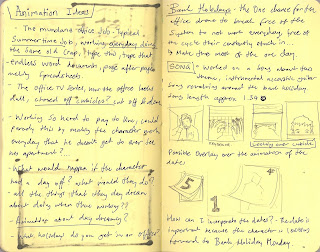 Animation Ideas
- The mundane office Job - Typical
Summertime Job, working everyday doing
the same old crap, type this, type that
- Endless word documents, page after page
messy Spreadsheets.
- The office TV Series, but the office looks
dull, closed off & cut off
- Working so hard to pay the Rent, could
parody this by making the character
everyday that he doesn't get to ever see
his apartment?
- What would happen if the character
had a day off? what would they do?
all the things that they day dream
about doing when there working??
- Animation about day dreaming?
- holiday do you get in an office?
Bank Holidays - the One chance for the
office drone to break free of the
System to not work everyday, free of
the cycle their constantly stuck in.
& Make the most of the one day.
SONG - worked on a song about this
theme, instrumental acoustic guitar
song revolving around the bank holiday.
Song length approx 1:34
Possible Overlay over the animation of the
dates
5
1
How can I incorporate the dates? - The date is
important because the character is looking
forward to Bank Holiday Monday.